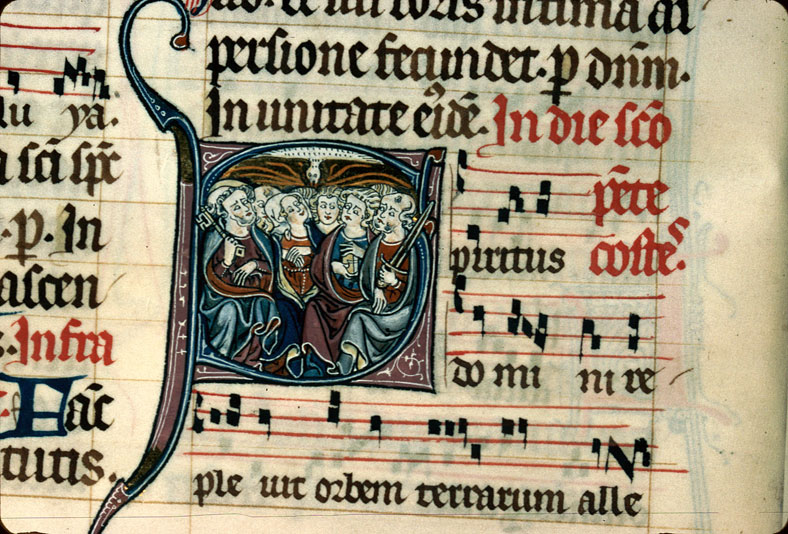 lu ya.
a sci spc
.p. In
ascen
s. Infra
Fac
tutis.
intima
persione fecundet. p dnm.
In unitate eide. In die sco
pente
piritus costes.
do mi ni re
ple uit orbem terrarum alle